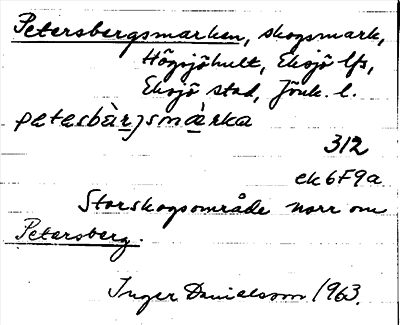 Petersbergsmarken, skogsmark,
Högsjöhult, Eksjö lfs,
Eksjö stad, Jönk. l.
petasbàrjsmàrka
312
ek6F9a
Storskogsområde norr om
Petersberg.
Inger Danielsson 1963.